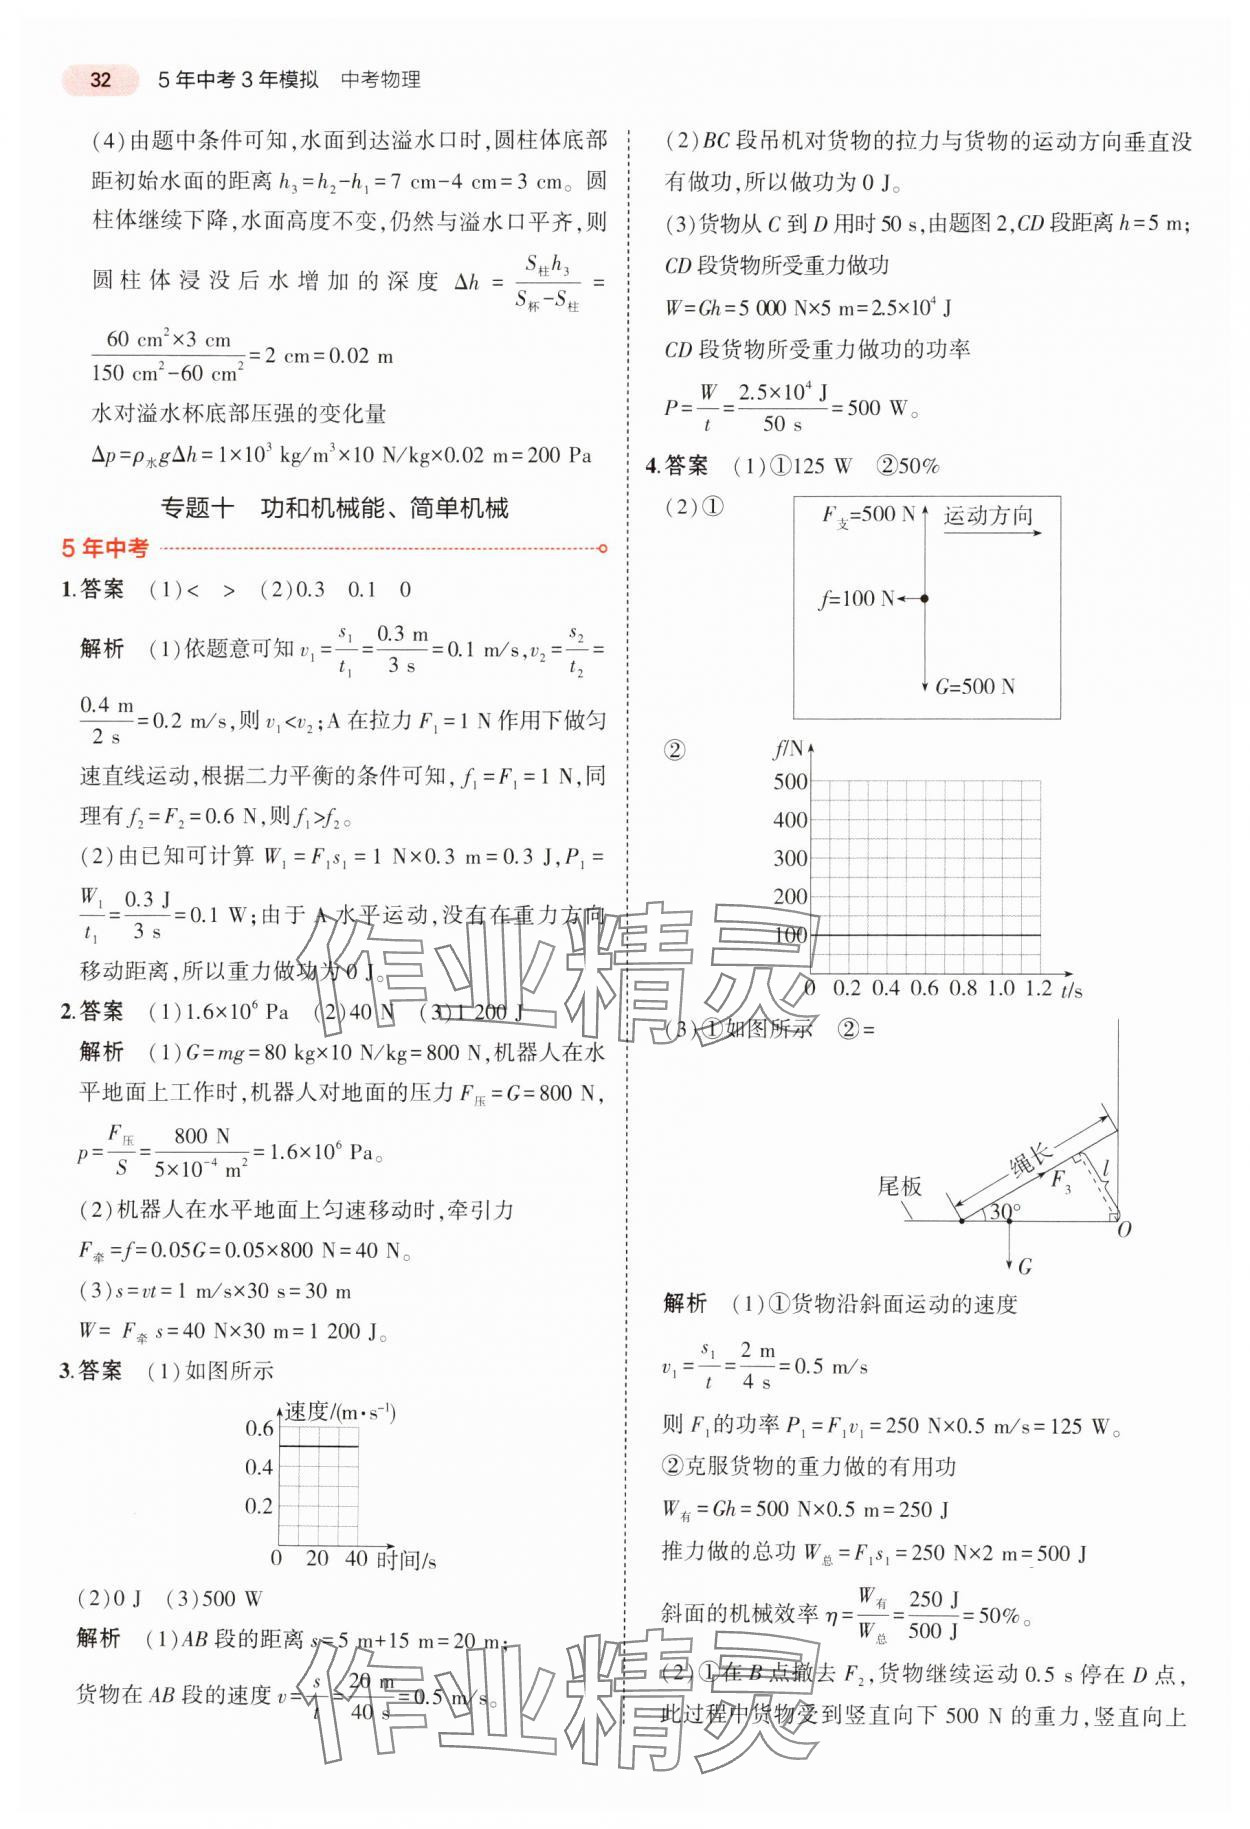 32 5年中考3年模拟 中考物理
(4)由题中条件可知,水面到达溢水口时,圆柱体底部
距初始水面的距离 h₃=h₂-h₁=7 cm-4 cm=3 cm。圆
柱体继续下降,水面高度不变,仍然与溢水口平齐,则
圆柱体浸没后水增加的深度 Δh = S柱h₃/(S杯-S柱) =
60 cm²×3 cm/(150 cm²-60 cm²)=2 cm=0.02 m
水对溢水杯底部压强的变化量
Δp=ρ水gΔh=1×10³ kg/m³×10 N/kg×0.02 m=200 Pa
专题十 功和机械能、简单机械
5年中考
1.答案 (1)< > (2)0.3 0.1 0
解析 (1)依题意可知 v₁=s₁/t₁=0.3 m/3 s=0.1 m/s,v₂=s₂/t₂=
0.4 m/2 s=0.2 m/s,则 v₁<v₂;A 在拉力 F₁=1 N 作用下做匀
速直线运动,根据二力平衡的条件可知,f₁=F₁=1 N,同
理有 f₂=F₂=0.6 N,则 f₁>f₂。
(2)由已知可计算 W₁=F₁s₁=1 N×0.3 m=0.3 J,P₁=
W₁/t₁=0.3 J/3 s=0.1 W;由于 A 水平运动,没有在重力方向
移动距离,所以重力做功为 0 J。
2.答案 (1)1.6×10⁶ Pa (2)40 N (3)1 200 J
解析 (1)G=mg=80 kg×10 N/kg=800 N,机器人在水
平地面上工作时,机器人对地面的压力 F压=G=800 N,
p=F压/S=800 N/(5×10⁻⁴ m²)=1.6×10⁶ Pa。
(2)机器人在水平地面上匀速移动时,牵引力
F牵=f=0.05G=0.05×800 N=40 N。
(3)s=vt=1 m/s×30 s=30 m
W= F牵 s=40 N×30 m=1 200 J。
3.答案 (1)如图所示
速度/(m·s⁻¹)
0.6
0.4
0.2
0 20 40 时间/s
(2)0 J (3)500 W
解析 (1)AB 段的距离 s=5 m+15 m=20 m;
货物在 AB 段的速度 v=s/t=20 m/40 s=0.5 m/s。
(2)BC 段吊机对货物的拉力与货物的运动方向垂直没
有做功,所以做功为 0 J。
(3)货物从 C 到 D 用时 50 s,由题图 2,CD 段距离 h=5 m;
CD 段货物所受重力做功
W=Gh=5 000 N×5 m=2.5×10⁴ J
CD 段货物所受重力做功的功率
P=W/t=2.5×10⁴ J/50 s=500 W。
4.答案 (1)①125 W ②50%
(2)①
F支=500 N 运动方向
f=100 N
G=500 N
②
f/N
500
400
300
200
100
0 0.2 0.4 0.6 0.8 1.0 1.2 t/s
(3)①如图所示 ②=
绳长
l
F₃
尾板
30°
O
G
解析 (1)①货物沿斜面运动的速度
v₁=s₁/t=2 m/4 s=0.5 m/s
则 F₁的功率 P₁=F₁v₁=250 N×0.5 m/s=125 W。
②克服货物的重力做的有用功
W有=Gh=500 N×0.5 m=250 J
推力做的总功 W总=F₁s₁=250 N×2 m=500 J
斜面的机械效率 η=W有/W总=250 J/500 J=50%。
(2)①在 B 点撤去 F₂,货物继续运动 0.5 s 停在 D 点,
此过程中货物受到竖直向下 500 N 的重力,竖直向上
作业精灵
作业精灵